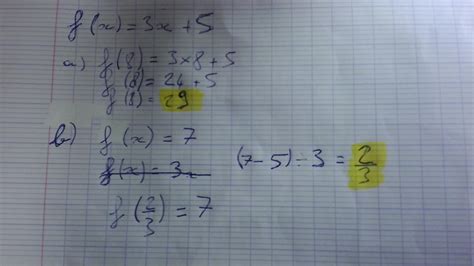 f(x) = 3x + 5
a) f(8) = 3×8 + 5
f(8) = 24 + 5
f(8) = 29
b) f(x) = 7
f(x) = 3x
(7 - 5) ÷ 3 = 2/3
f(2/3) = 7